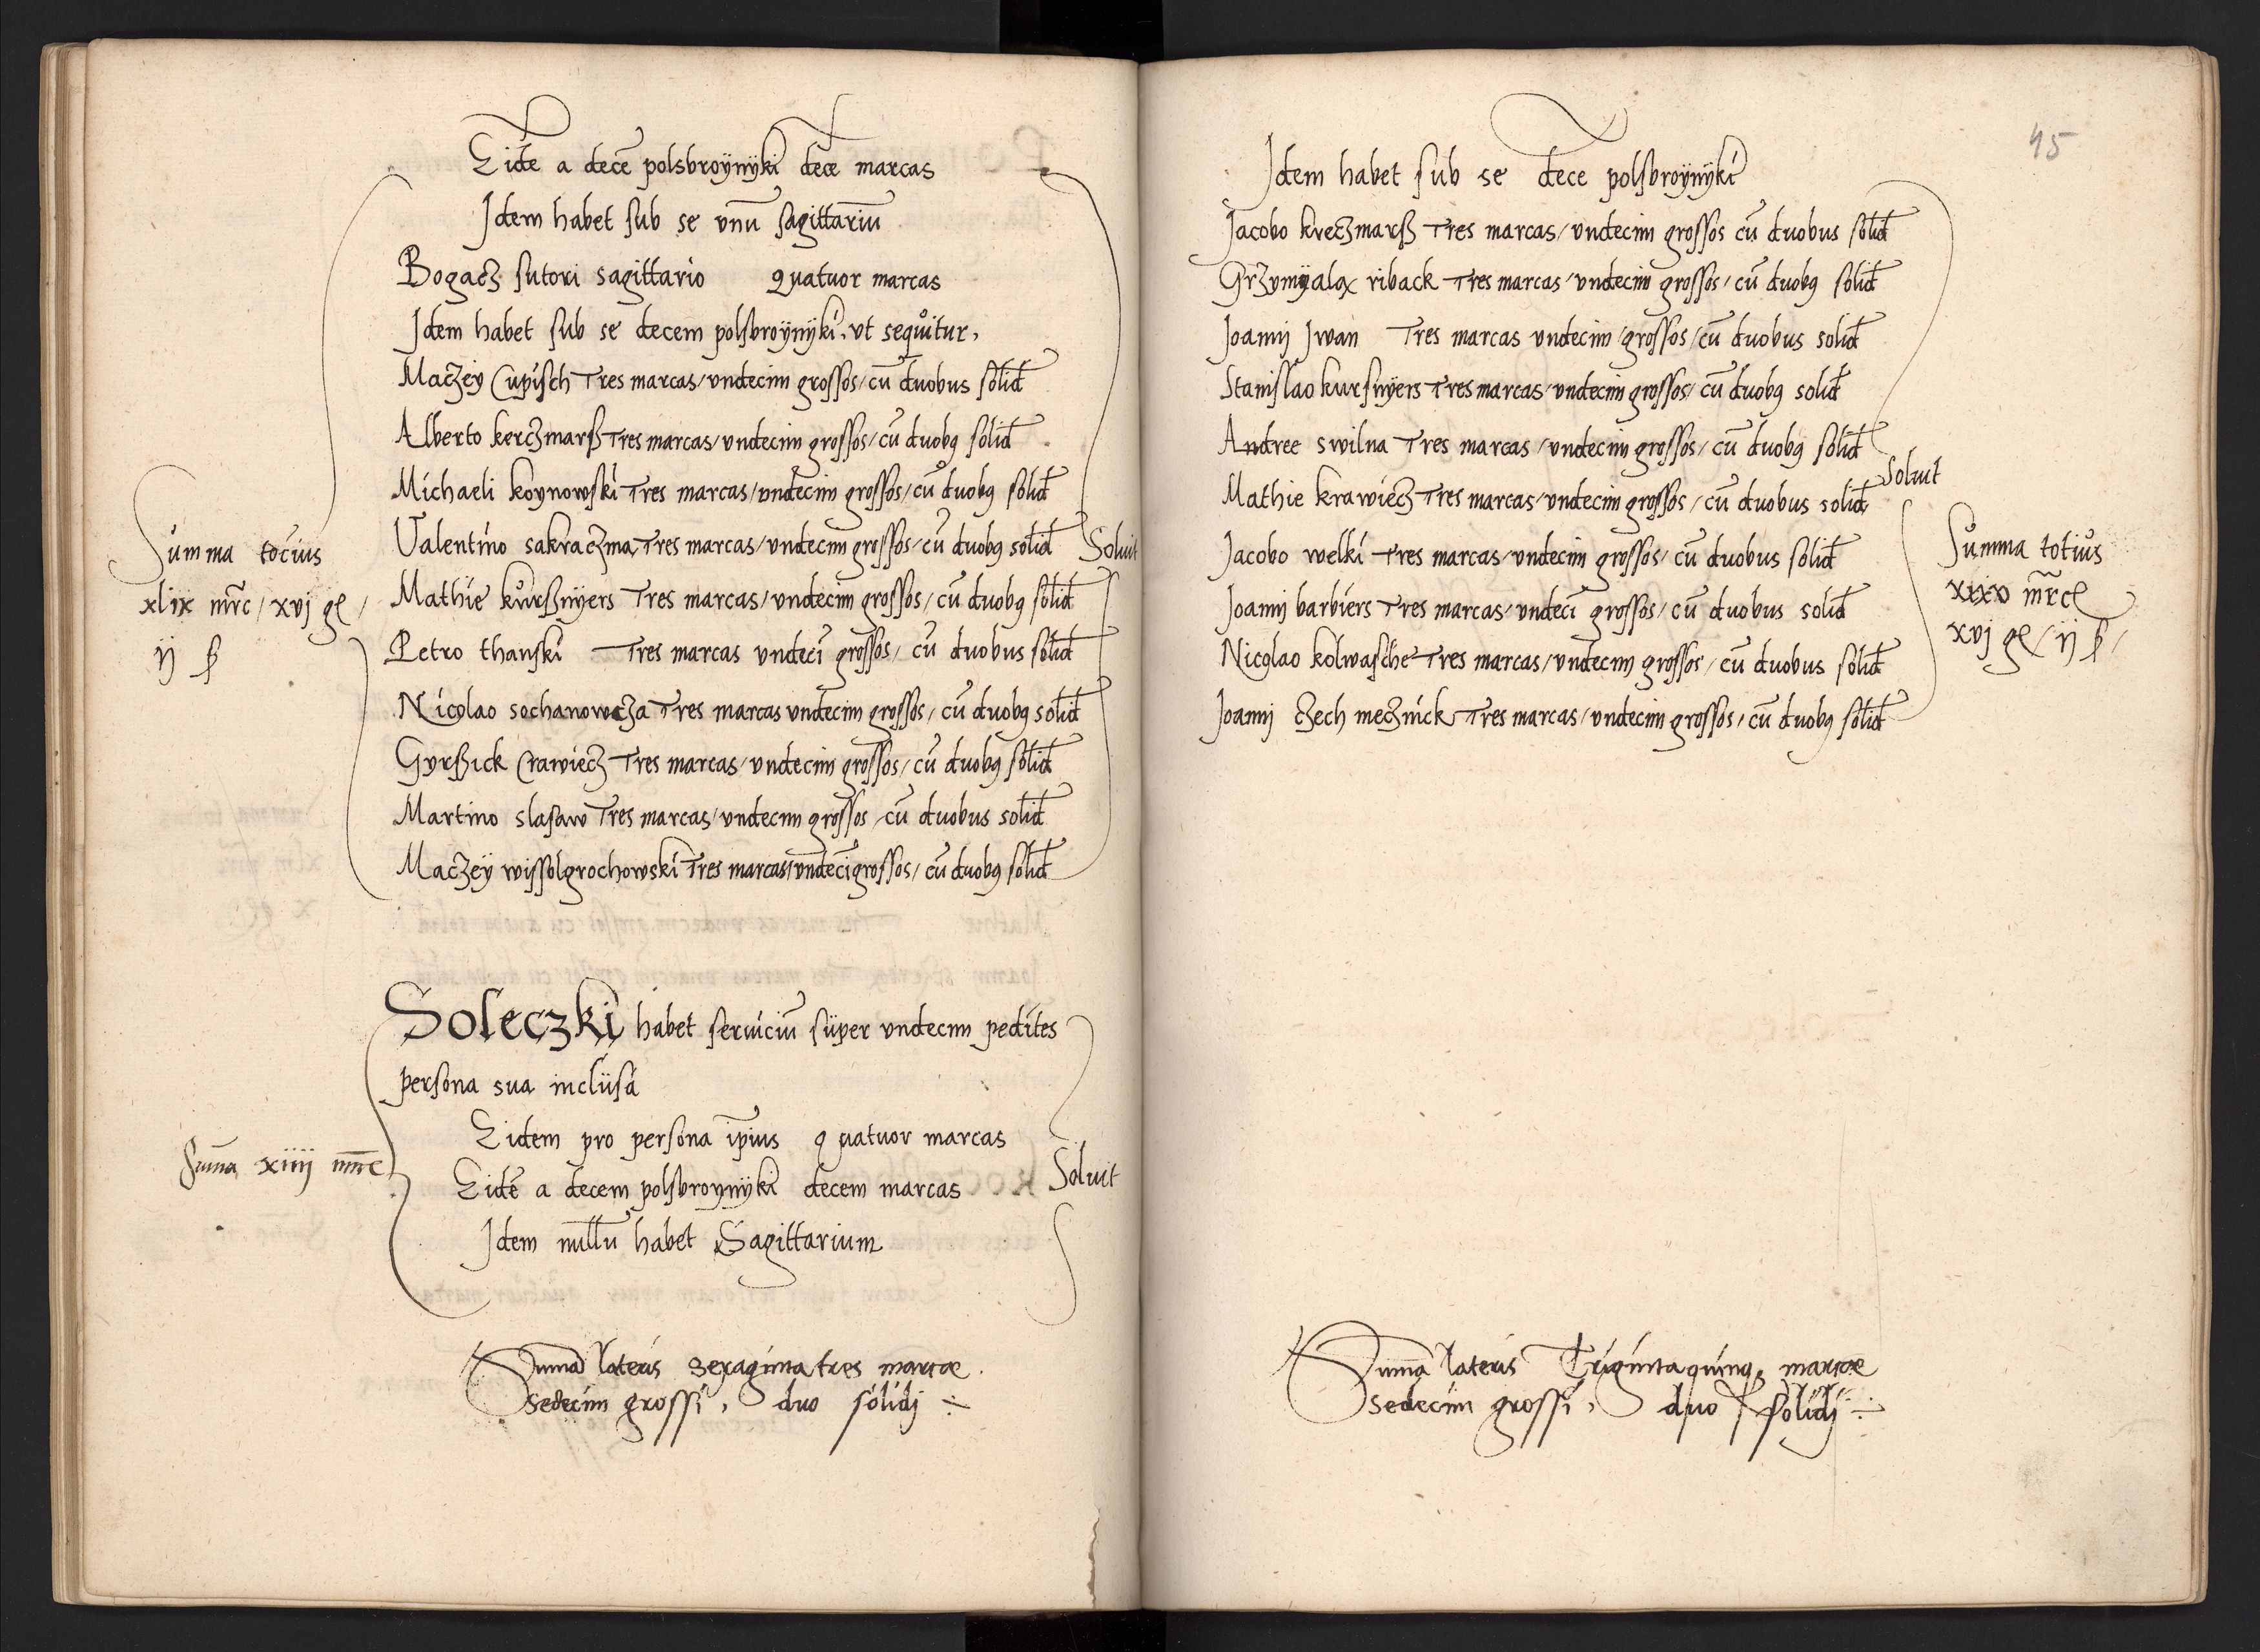 Eidē a decē polsbroÿnÿki decē marcas
Idem habet sub se vnū sagittariū
Bogacz sutori sagittario quatuor marcas
Idem habet sub se decem polsbroÿnÿki, vt sequitur,
Maczey Cupisch Tres marcas/vndecim grossos/cū duobus solid
Alberto kerczmarß Tres marcas/vndecim grossos/cū duobꝯ solid
Michaeli koynowski Tres marcas/vndecim grossos/cū duobꝯ solid
Valentino sakraczma Tres marcas/vndecim grossos/cū duobꝯ solid
Soluit
Summa tocius
xlix mrc/xvj gl/
ij ß
Mathie kurßnÿers Tres marcas/vndecim grossos/cū duobꝯ solid
Petro thanski Tres marcas vndecī grossos/cū duobus solid
Nicolao sochanowcza Tres marcas vndecim grossos/cū duobꝯ solid
Gyrßick Crawiecz Tres marcas/vndecim grossos/cū duobꝯ solid
Martino slasaw Tres marcas/vndecim grossos/cū duobus solid
Maczeÿ wissolgrochowski Tres marcas/vndecī grossos/cū duobꝯ solid
Soleczki habet seruiciū super vndecim pedites
persona sua inclusa
Eidem pro persona ip̄ius quatuor marcas
Eidē a decem polsbroynÿki decem marcas
Idem nullū habet Sagittarium
Sum̄a xiiij mrc
Soluit
Sum̄a lateris sexaginta tres marcae
sedecim grossi, duo solidj
45
Idem habet sub se dece polsbroÿnÿki
Jacobo kreczmarß Tres marcas/vndecim grossos cū duobus solid
Grzymÿala riback Tres marcas/vndecim grossos/cū duobꝯ solid
Joannj Jwan Tres marcas vndecim/grossos/cū duobus solid
Stanislao kursnÿers Tres marcas/vndecim grossos/cū duobꝯ solid
Andree swilna Tres marcas/vndecim grossos/cū duobꝯ solid
Soluit
Mathie krawiecz Tres marcas/vndecim grossos/cū duobus solid
Jacobo welki Tres marcas/vndecim grossos/cū duobus solid
Joannj barbiers Tres marcas/vndecī grossos/cū duobus solid
Nicolao kolwasche Tres marcas/vndecim grossos/cū duobus solid
Joannj Czech mecznick Tres marcas/vndecim grossos/cū duobꝯ solid
Summa totius
xxxv mrc
xvj gl/ij ß/
Sum̄a lateris Triginta quinqꝫ marcae
sedecim grossi, duo solidj